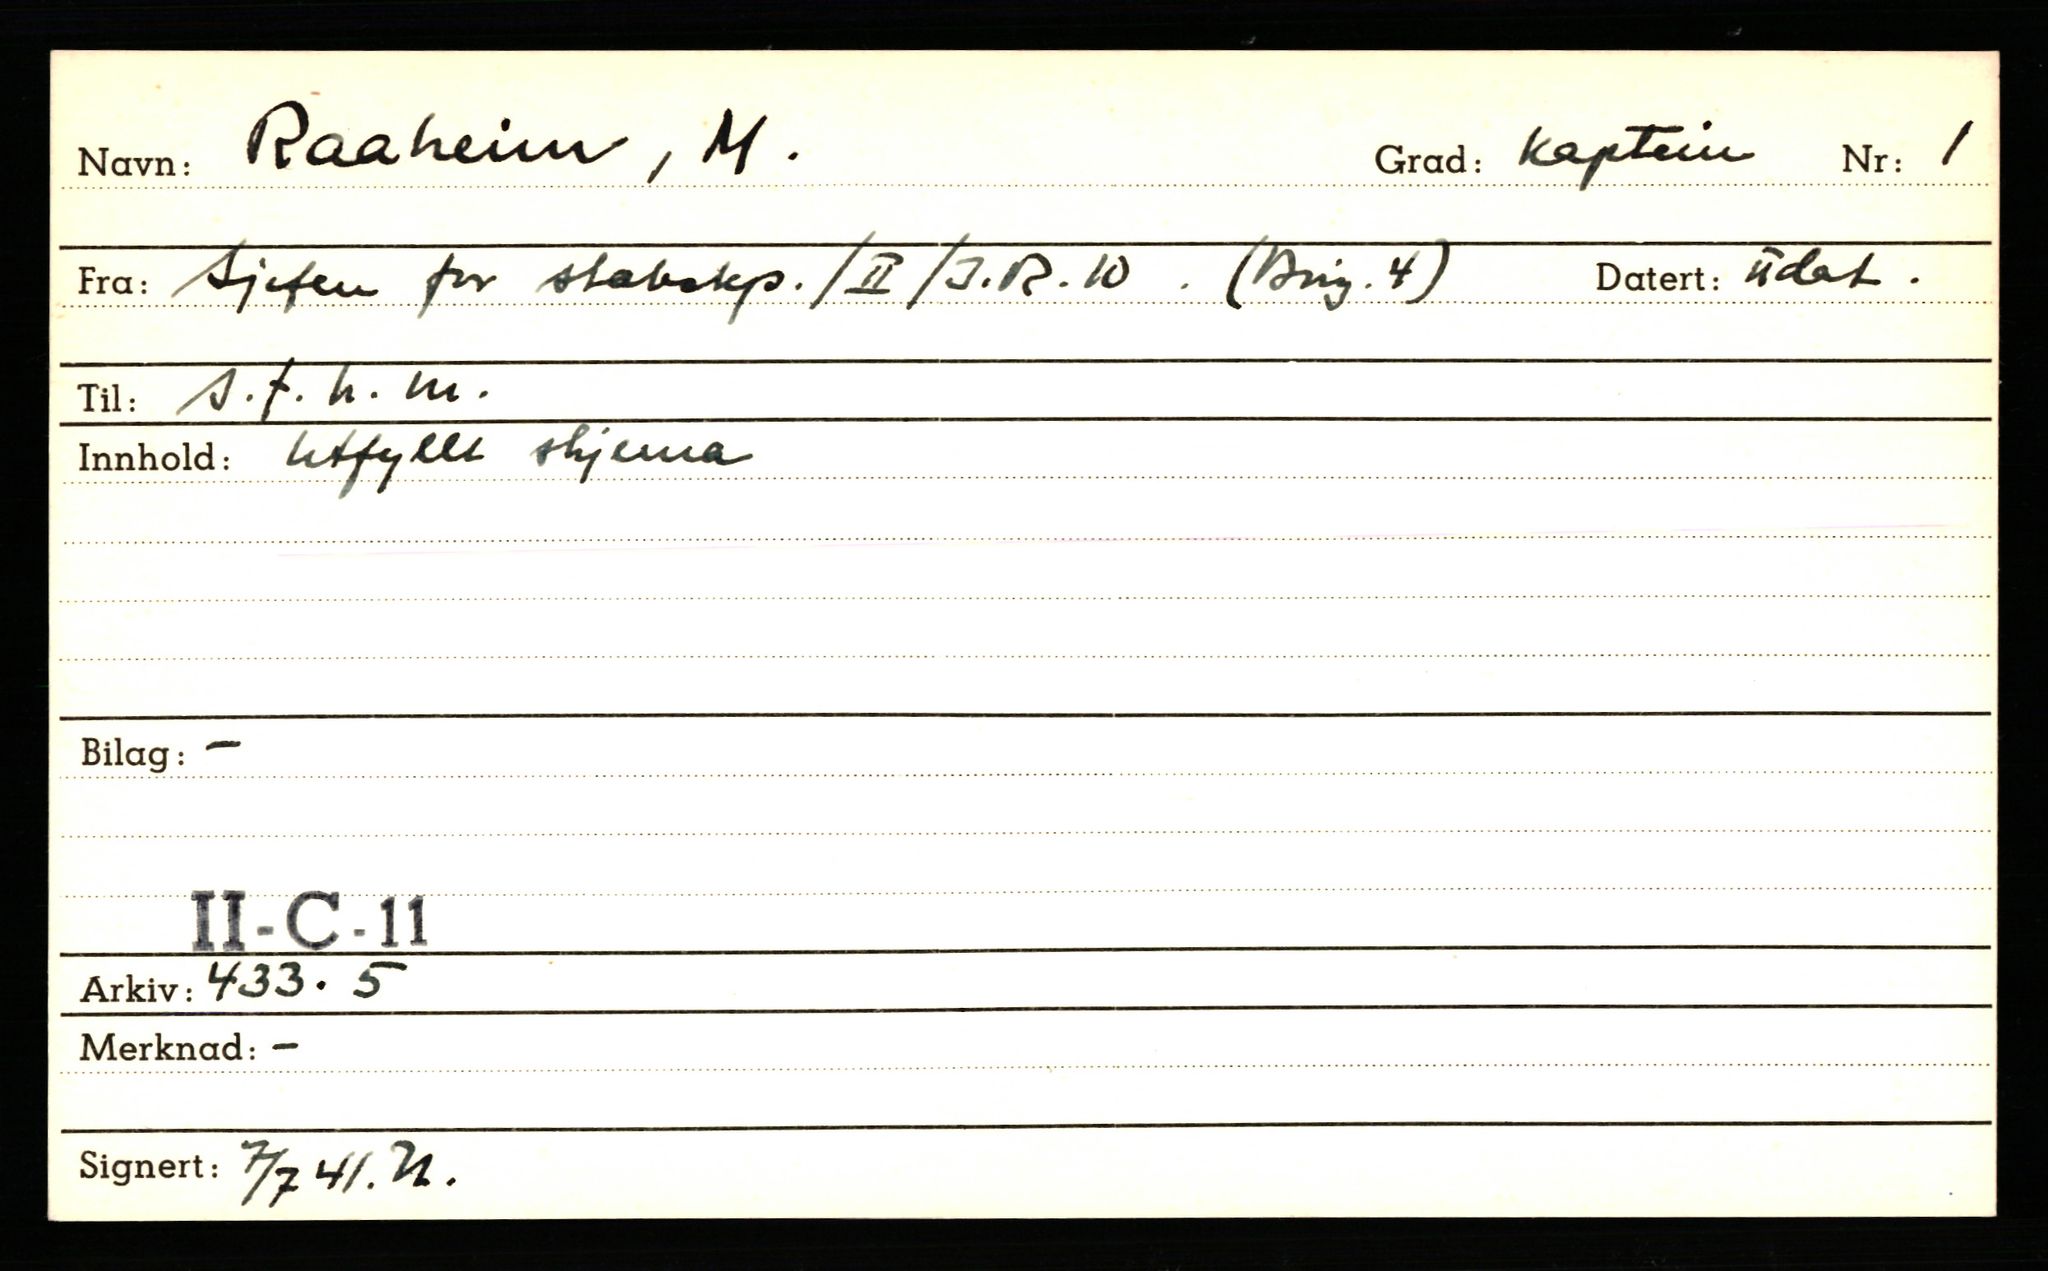 Navn: Raaheim, M. Grad: Kaptein Nr: 1
Fra: Sjefen for stabskp./II/I.R.10. (Brig. 4) Datert: Udat.
Til: s.f.h.m.
Innhold: Utfyllt skjema
Bilag: -
II-C-11
Arkiv: 433.5
Merknad: -
Signert: 7/7 41. N.